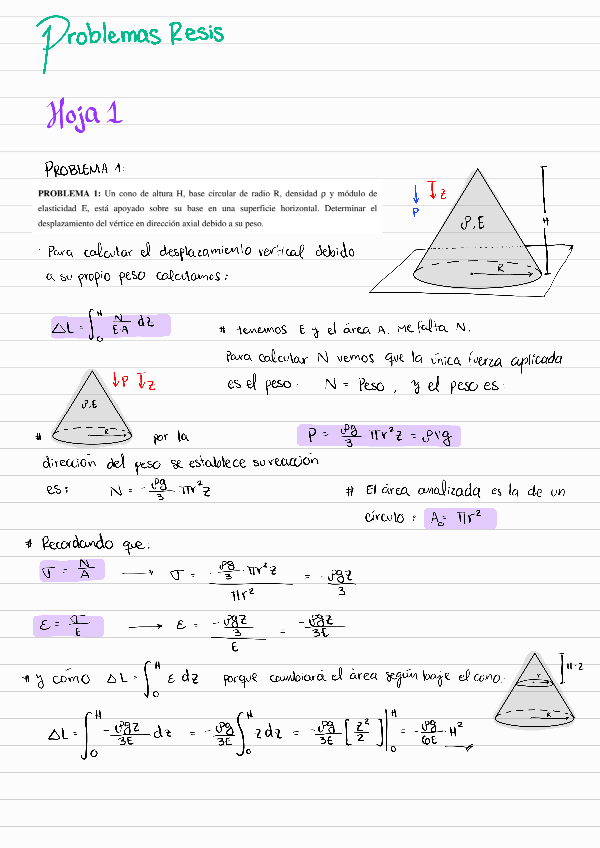 Problemas Resis
Hoja 1
PROBLEMA 1:
PROBLEMA 1: Un cono de altura H, base circular de radio R, densidad ρ y módulo de
elasticidad E, está apoyado sobre su base en una superficie horizontal. Determinar el
desplazamiento del vértice en dirección axial debido a su peso.
P
Z
ρ, E
H
R
· Para calcular el desplazamiento vertical debido
a su propio peso calculamos:
ΔL = ∫₀ᴴ N/EA dz
# tenemos E y el área A. Me falta N.
Para calcular N vemos que la única fuerza aplicada
es el peso. N = Peso, y el peso es.
↓P ↓Z
ρ, E
R
# por la
P = ρg/3 πr²z = ρVg
dirección del peso se establece su reacción
es: N = -ρg/3 · πr²z
# El área analizada es la de un
círculo: A₀ = πr²
# Recordando que:
σ = N/A → σ = (-ρg/3 · πr²z)/(πr²) = -ρgz/3
ε = σ/E → ε = (-ρgz/3)/E = -ρgz/3E
# y cómo ΔL = ∫₀ᴴ ε dz porque cambiará el área según baje el cono.
r
H-z
R
ΔL = ∫₀ᴴ -ρgz/3E dz = -ρg/3E ∫₀ᴴ z dz = -ρg/3E [z²/2]|₀ᴴ = -ρg/6E · H²